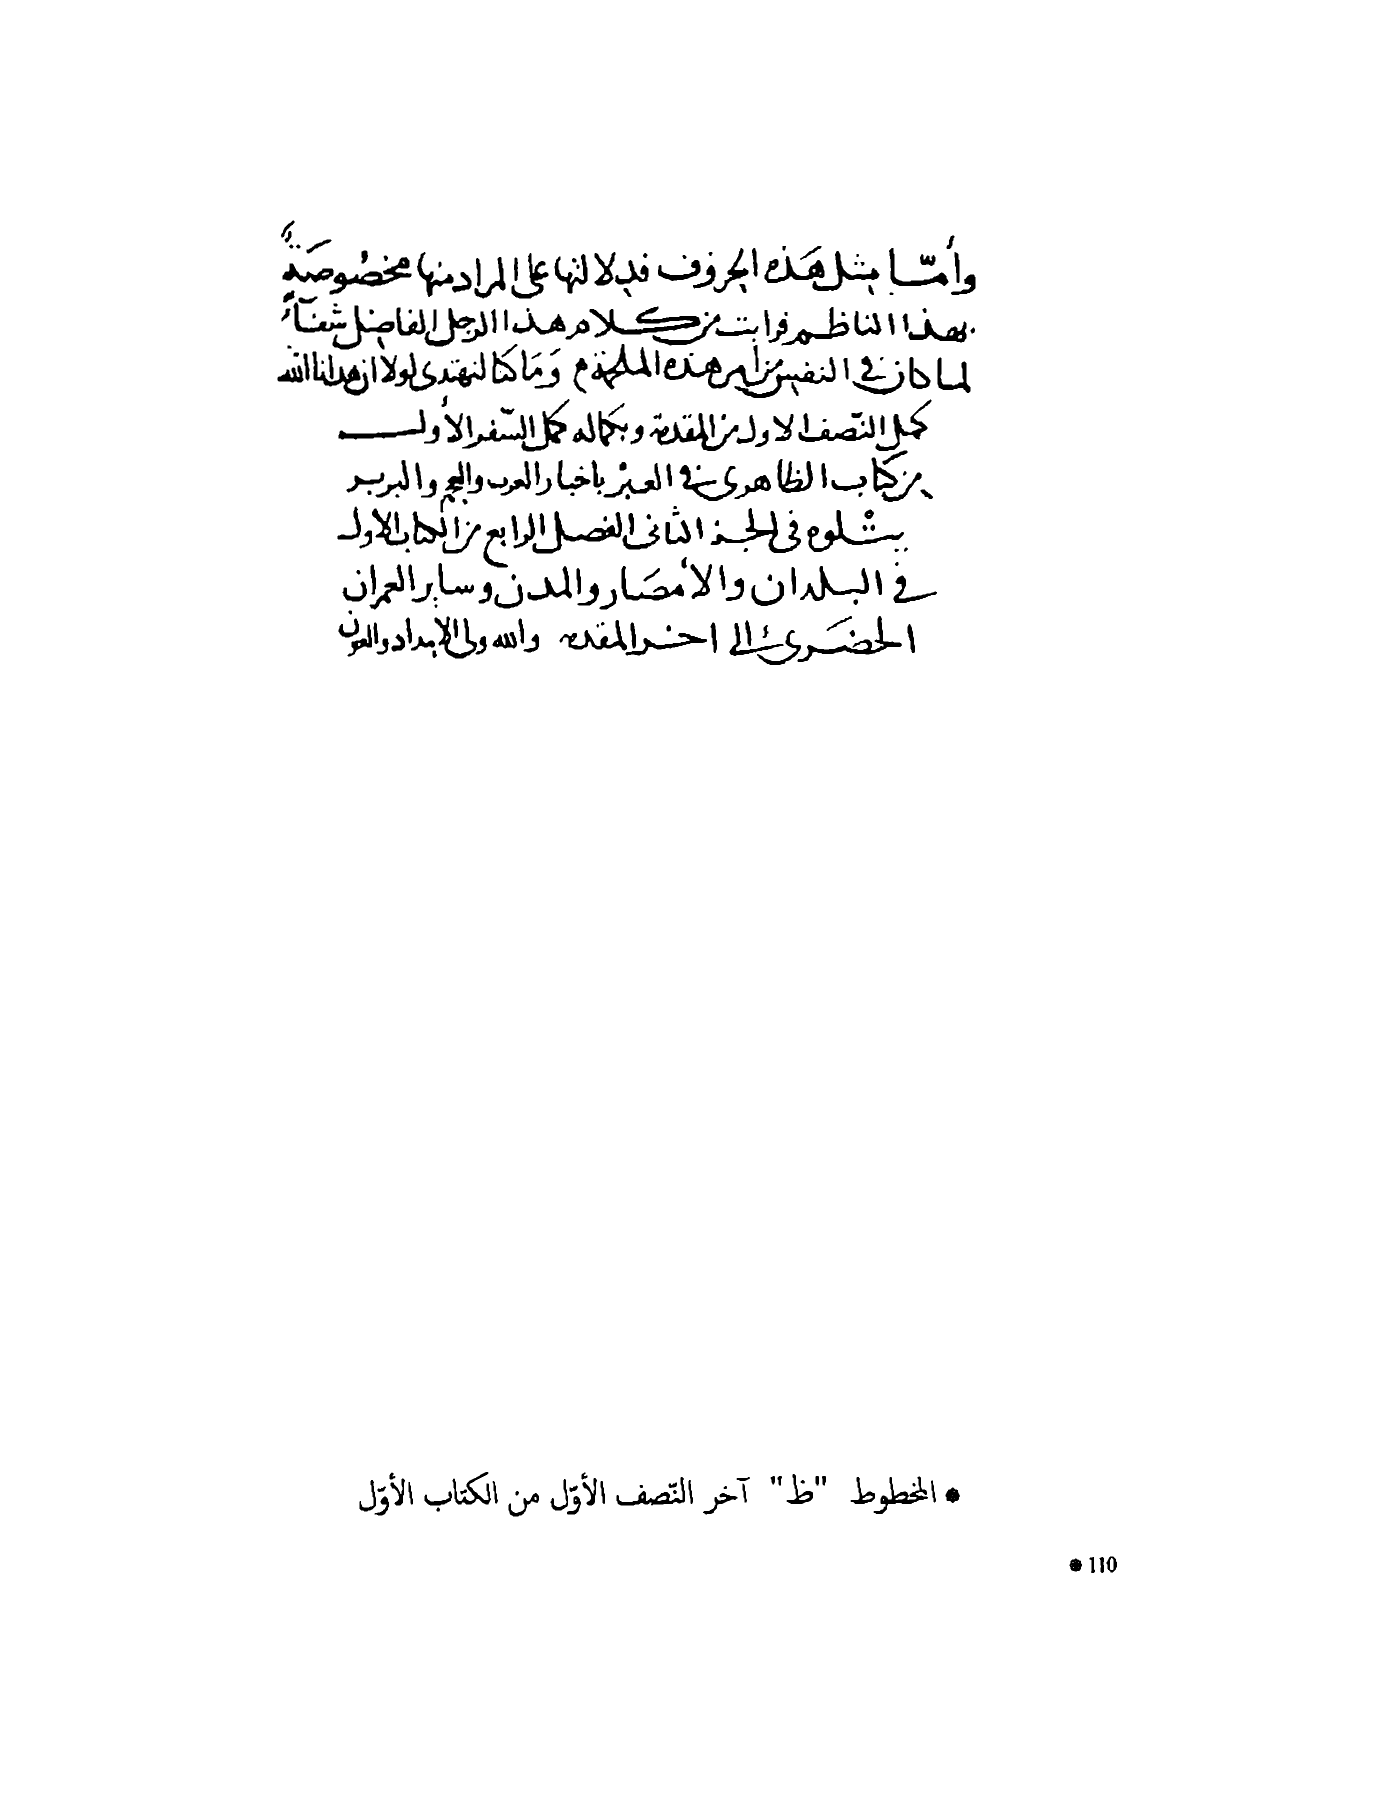 وأمّا مثل هَذه الحروف فدلالتها على المراد منها مخصُوصَةٌ
بهذا الناظم فرايت من كلام هذا الرجل الفاضل شفآءً
لما كان في النفس من امر هذه الملحمة وَمَا كنا لنهتدى لولا ان هدانا الله
كمل النّصف الاول من المقدمة وبكماله كمل السّفر الأول
من كتاب الظاهرى في العبْر باخبار العرب والعجم والبربر
يتْلوه في الجزء الثانى الفصل الرابع من الكتاب الاول
في البلدان والأمصَار والمدن وساير العمران
الحضَري الى اخر المقدمه والله ولى الامداد والعون
● المخطوط "ظ" آخر النّصف الأوّل من الكتاب الأوّل
110 ●